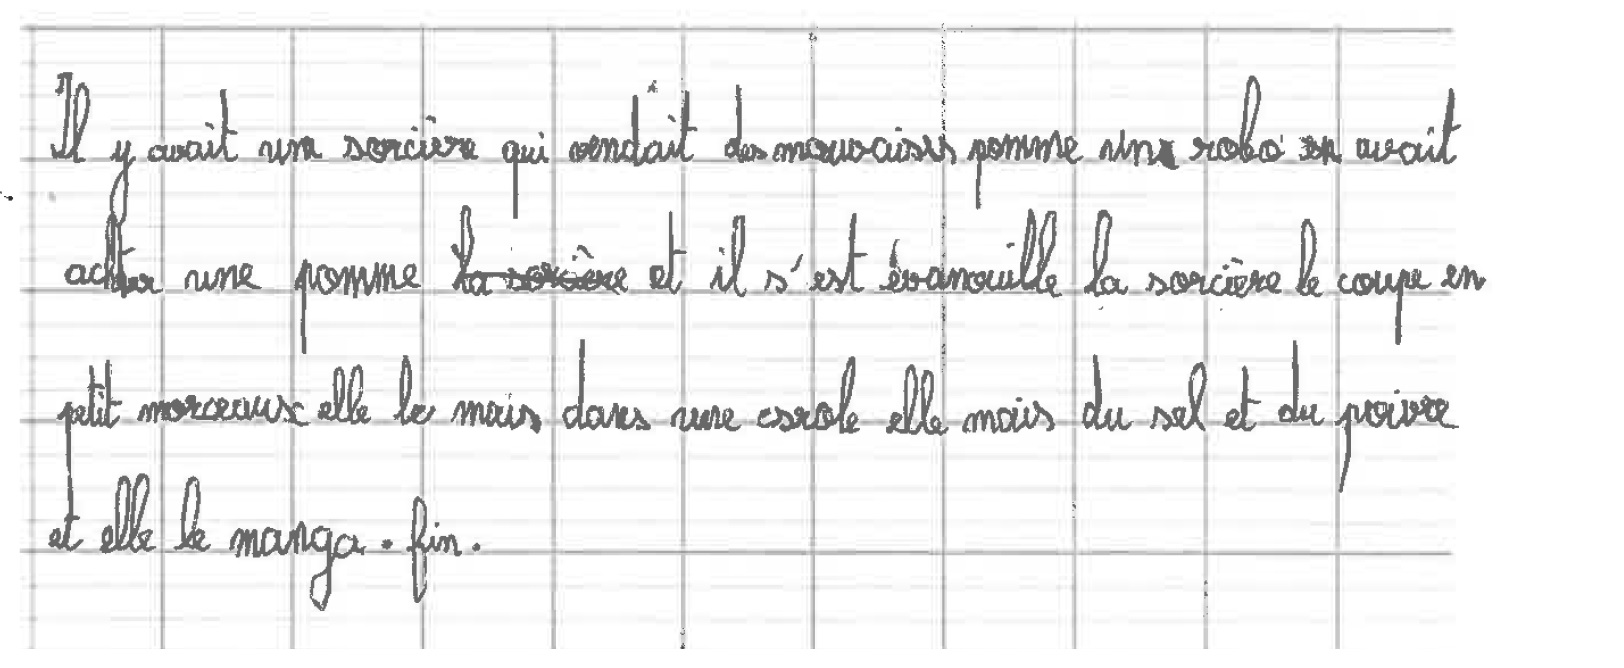 Il y avait une sorcière qui vendait des mauvaises pomme une robo avait
achter une pomme la sorcière et il s'est évanouille la sorcière le coupe en
petit morceaux elle le mais dans une csrole elle mais du sel et du poivre
et elle le manga. fin.